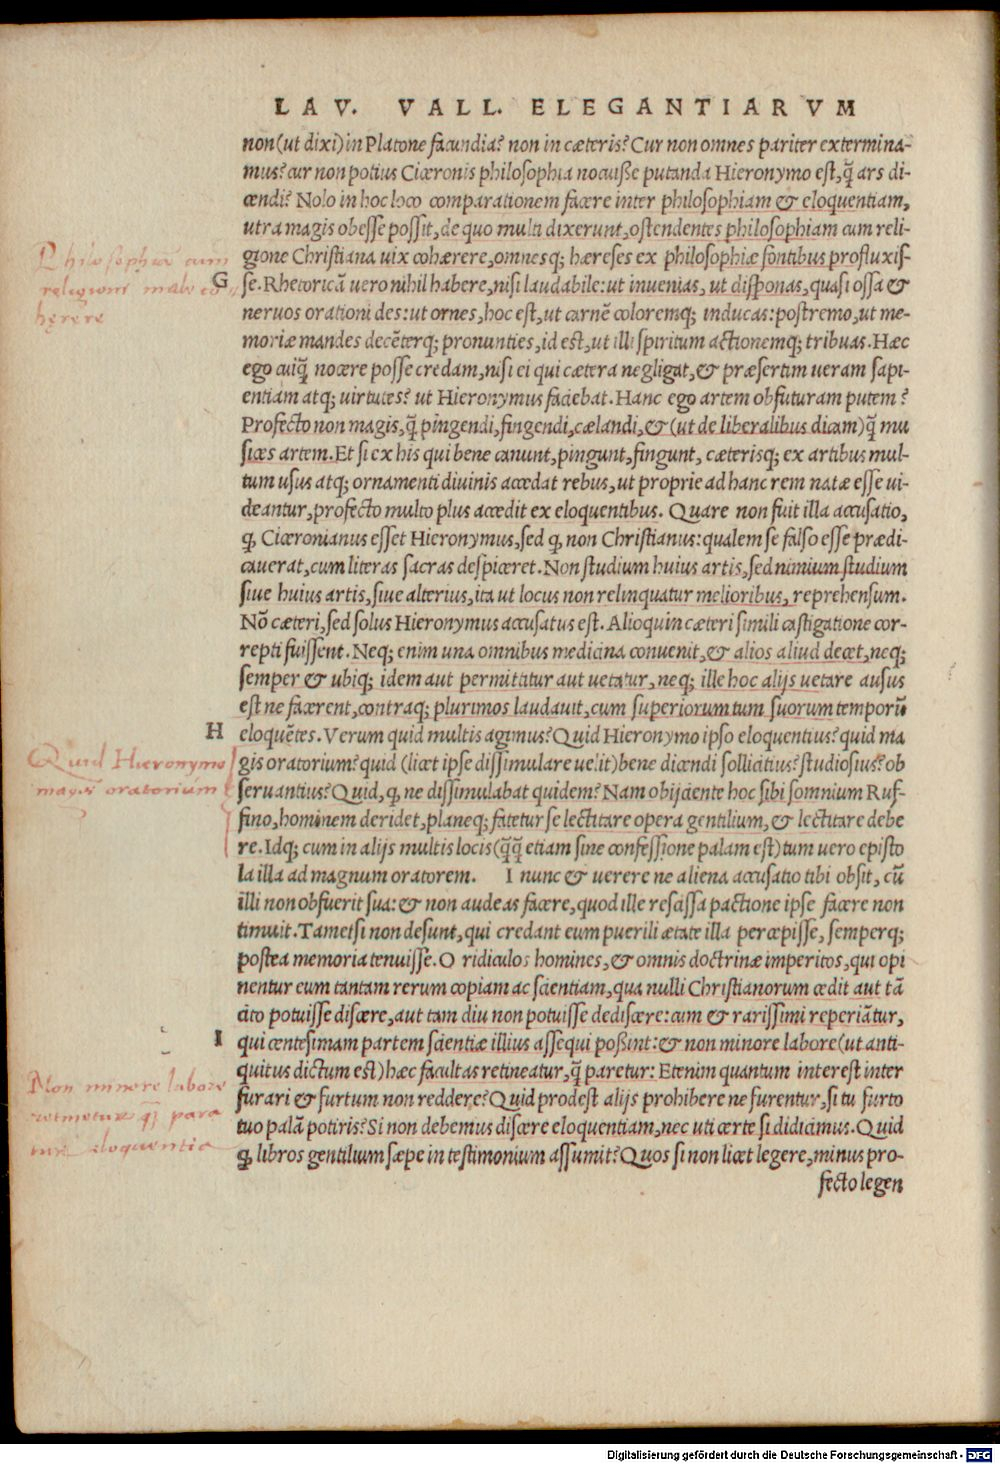 LAV. VALL. ELEGANTIARVM
non (ut dixi) in Platone facundia? non in cæteris? Cur non omnes pariter extermina-
mus? cur non potius Ciceronis philosophia nocuiße putanda Hieronymo est, q̃ ars di-
cendi? Nolo in hoc loco comparationem facere inter philosophiam & eloquentiam,
utra magis obesse possit, de quo multi dixerunt, ostendentes philosophiam cum reli-
gione Christiana uix cohærere, omnesq; hæreses ex philosophiæ fontibus profluxis-
G se. Rhetoricã uero nihil habere, nisi laudabile: ut inuenias, ut disponas, quasi ossa &
neruos orationi des: ut ornes, hoc est, ut carnẽ coloremq; inducas: postremo, ut me-
moriæ mandes decẽterq; pronunties, id est, ut illi spiritum actionemq; tribuas. Hæc
ego cuiq̃ nocere posse credam, nisi ei qui cætera negligat, & præsertim ueram sapi-
entiam atq; uirtutes? ut Hieronymus faciebat. Hanc ego artem obfuturam putem?
Profecto non magis, q̃ pingendi, fingendi, cælandi, & (ut de liberalibus dicam) q̃ mu
sices artem. Et si ex his qui bene canunt, pingunt, fingunt, cæterisq; ex artibus mul-
tum usus atq; ornamenti diuinis accedat rebus, ut proprie ad hanc rem natæ esse ui-
deantur, profecto multo plus accedit ex eloquentibus. Quare non fuit illa accusatio,
q̃ Ciceronianus esset Hieronymus, sed q̃ non Christianus: qualem se falso esse prædi-
cauerat, cum literas sacras despiceret. Non studium huius artis, sed nimium studium
siue huius artis, siue alterius, ita ut locus non relinquatur melioribus, reprehensum.
Nõ cæteri, sed solus Hieronymus accusatus est. Alioqui n cæteri simili castigatione cor-
repti fuissent. Neq; enim una omnibus medicina conuenit, & alios aliud decet, neq;
semper & ubiq; idem aut permittitur aut uetatur, neq; ille hoc alijs uetare ausus
est ne facerent, contraq; plurimos laudauit, cum superiorum tum suorum temporũ
H eloquẽtes. Verum quid multis agimus? Quid Hieronymo ipso eloquentius? quid ma
gis oratorium? quid (licet ipse dissimulare uelit) bene dicendi sollicitius? studiosius? ob
seruantius? Quid, q̃ ne dissimulabat quidem? Nam obijciente hoc sibi somnium Ruf-
fino, hominem deridet, planeq; fatetur se lectitare opera gentilium, & lectitare debe
re. Idq; cum in alijs multis locis (q̃q̃ etiam sine confessione palam est) tum uero episto
la illa ad magnum oratorem. I nunc & uerere ne aliena accusatio tibi obsit, cũ
illi non obfuerit sua: & non audeas facere, quod ille rescissa pactione ipse facere non
timuit. Tametsi non desunt, qui credant eum puerili ætate illa percepisse, semperq;
postea memoria tenuisse. O ridiculos homines, & omnis doctrinæ imperitos, qui opi
nentur eum tantam rerum copiam ac scientiam, qua nulli Christianorum cedit aut tã
cito potuisse discere, aut tam diu non potuisse dediscere: cum & rarissimi reperiãtur,
I qui centesimam partem scientiæ illius assequi poßint: & non minore labore (ut anti-
quitus dictum est) hæc facultas retineatur, q̃ paretur: Etenim quantum interest inter
furari & furtum non reddere? Quid prodest alijs prohibere ne furentur, si tu furto
tuo palã potiris? Si non debemus discere eloquentiam, nec uti certe si didicimus. Quid
q̃ libros gentilium sæpe in testimonium assumit? Quos si non licet legere, minus pro-
fecto legen
Philosophiã cum
religioni male co
hęrere
Quid Hieronymo
magis oratorium
Non minore labore
retinetur q̃ para
tur eloquentia
Digitalisierung gefördert durch die Deutsche Forschungsgemeinschaft - DFG